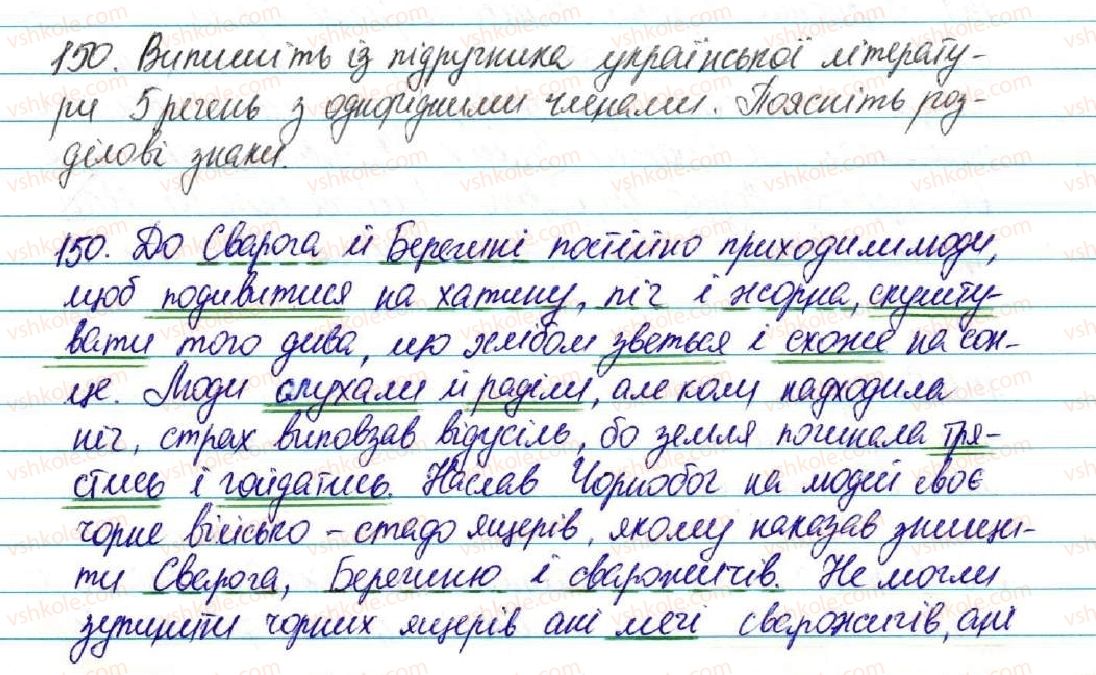 150. Випишіть із підручника української літерату-
ри 5 речень з однорідними членами. Поясніть роз-
ділові знаки.
150. До Сварога й Берегині постійно приходили люди,
щоб подивитися на хатину, піч і жорна, скушту-
вати того дива, що хлібом зветься і схоже на сон-
це. Люди слухали й раділи, але коли надходила
ніч, страх виповзав відусіль, бо земля починала тря-
стись і гойдатись. Наслав Чорнобог на людей своє
чорне військо – стадо ящерів, якому наказав знищи-
ти Сварога, Берегиню і сварожичів. Не могли
зупинити чорних ящерів ані мечі сварожичів, ані